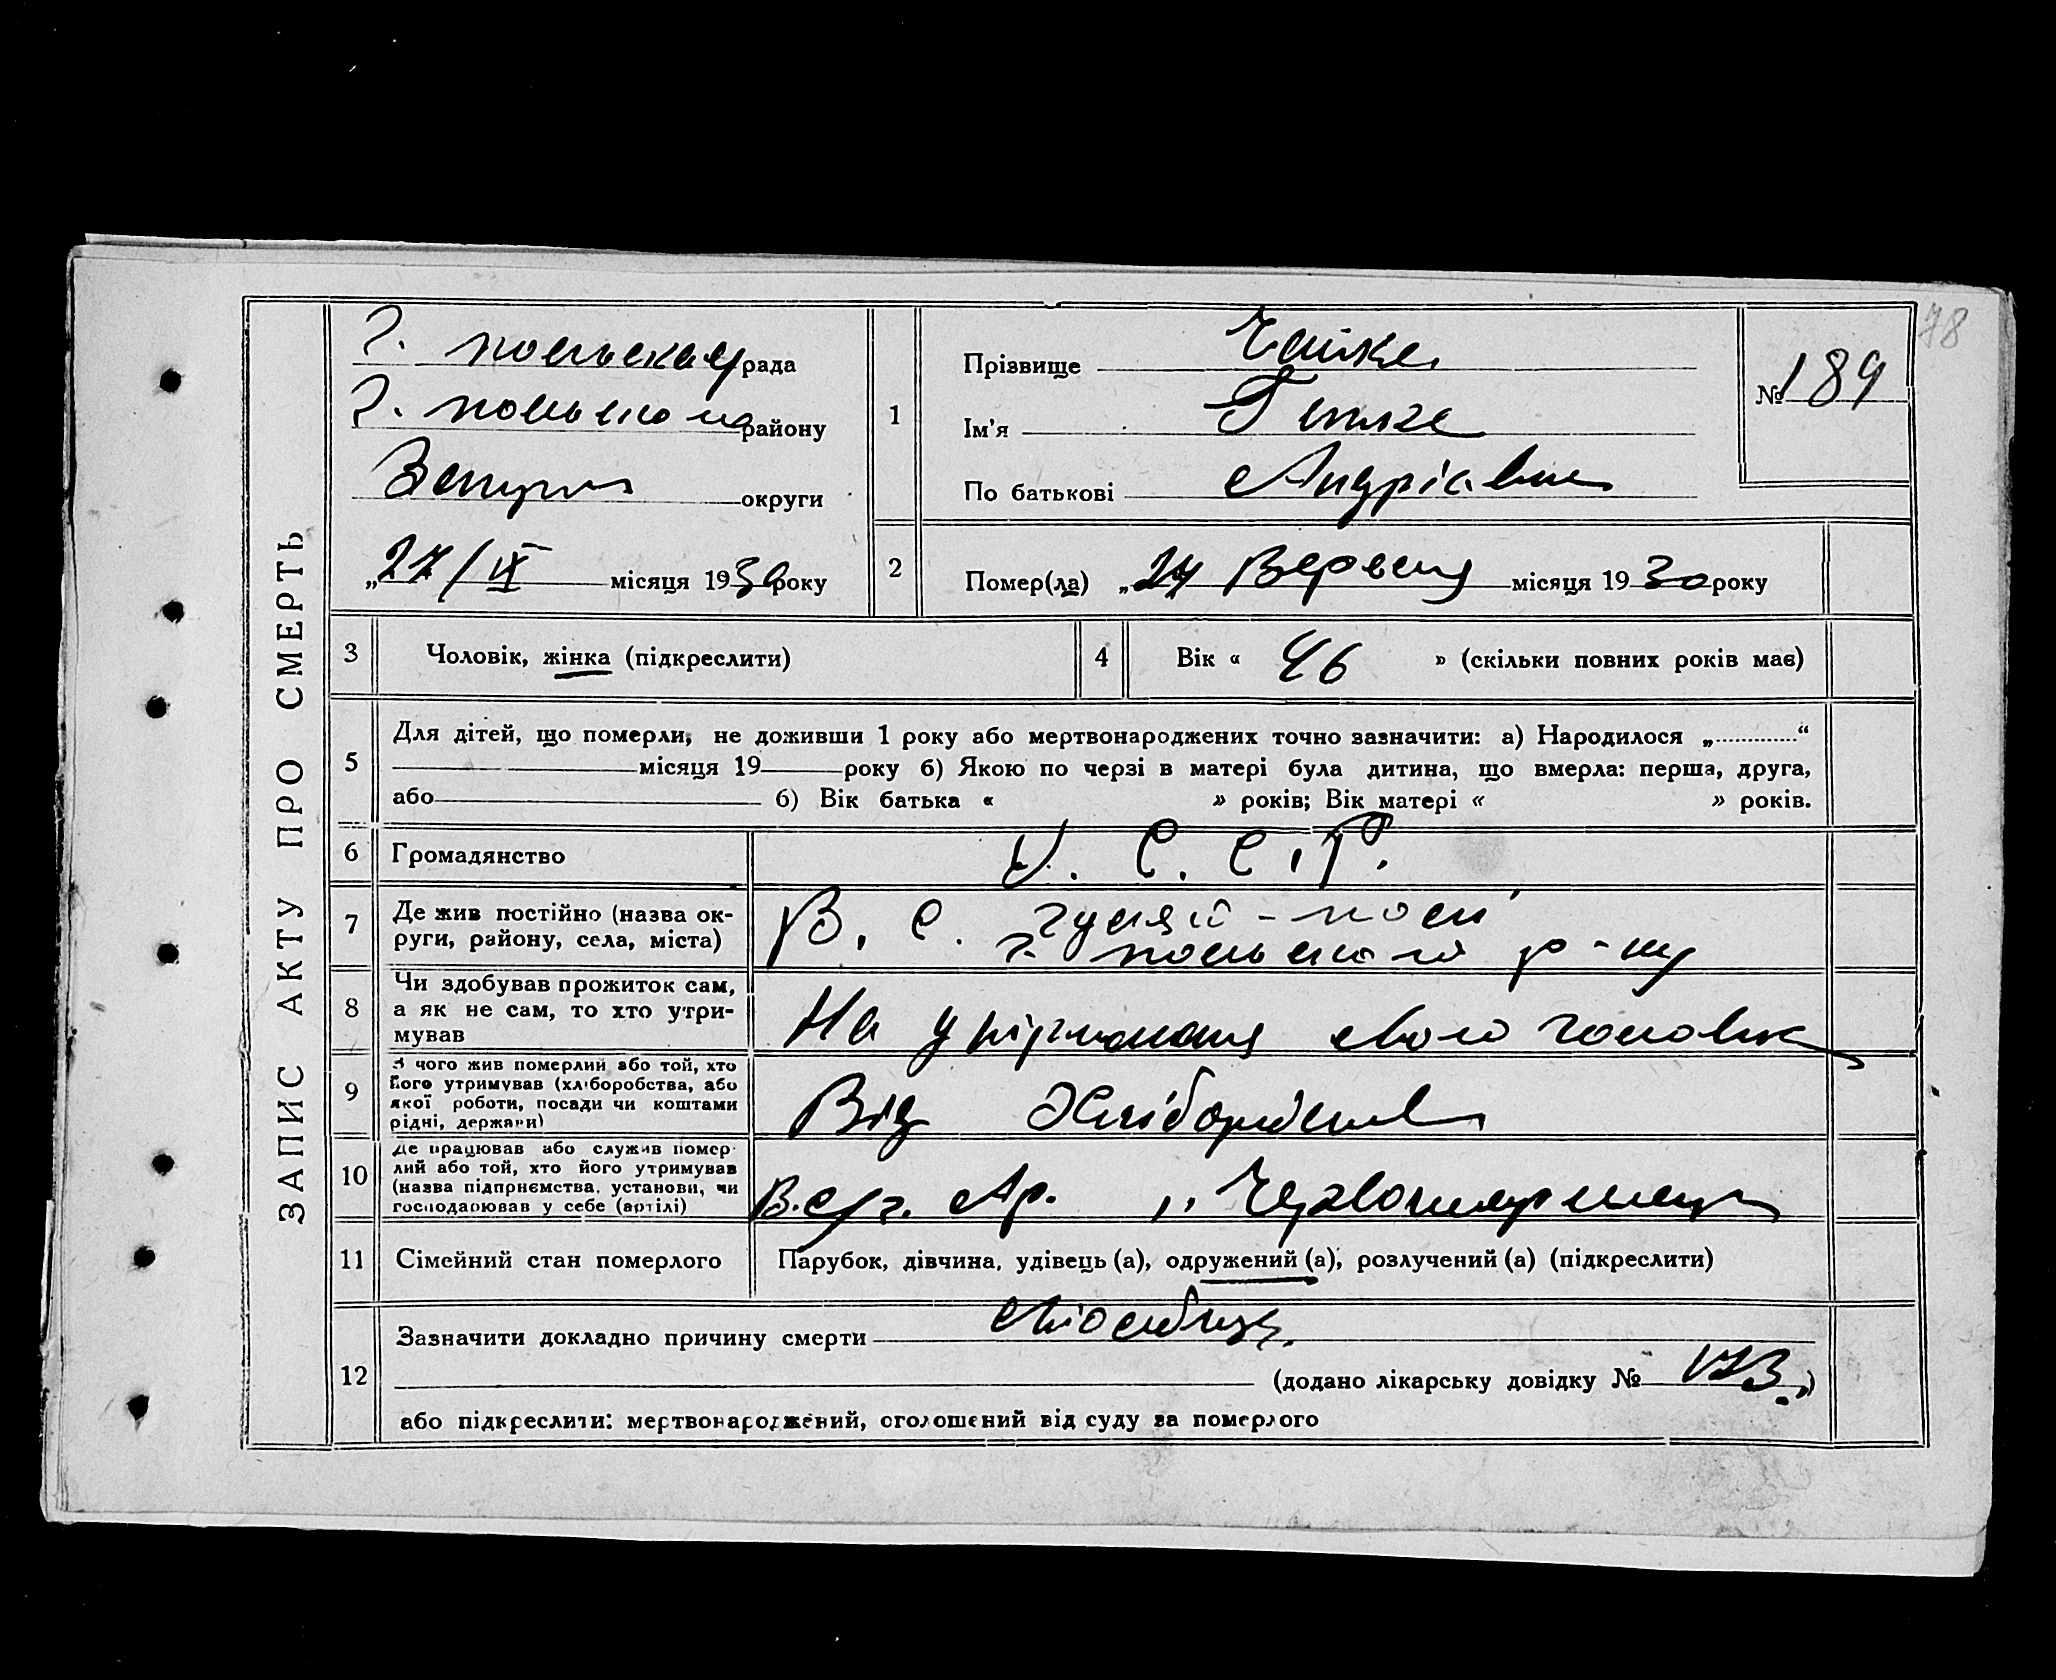 78
ЗАПИС АКТУ ПРО СМЕРТЬ
Г. польська рада
Г. польського району
Запоріж округи
„27/IX місяця 1930 року
1
Прізвище Чайка
Ім'я
По батькові Андріївна
№ 189
2
Помер(ла) „24 Вересня місяця 1930 року
3 Чоловік, жінка (підкреслити)
4 Вік « 46 » (скільки повних років має)
5
Для дітей, що померли, не доживши 1 року або мертвонароджених точно зазначити: а) Народилося „............“
місяця 19 року б) Якою по черзі в матері була дитина, що вмерла: перша, друга,
або б) Вік батька « » років; Вік матері « » років.
6 Громадянство У. С. С. Р.
7
Де жив постійно (назва ок-
руги, району, села, міста)
В. с. Гуляй-полі
Г. польського р-ну
8
Чи здобував прожиток сам,
а як не сам, то хто утри-
мував
На утрімання свого чоловіка
9
З чого жив померлий або той, хто
його утримував (хліборобства, або
якої роботи, посади чи коштами
рідні, держави)
Від Хліборобства
10
Де працював або служив помер-
лий або той, хто його утримував
(назва підприємства, установи, чи
господарював у себе (артілі)
В. с/г. Ар.
11 Сімейний стан померлого Парубок, дівчина, удівець (а), одружений (а), розлучений (а) (підкреслити)
12
Зазначити докладно причину смерти
(додано лікарську довідку № 173.)
або підкреслити: мертвонароджений, оголошений від суду за померлого